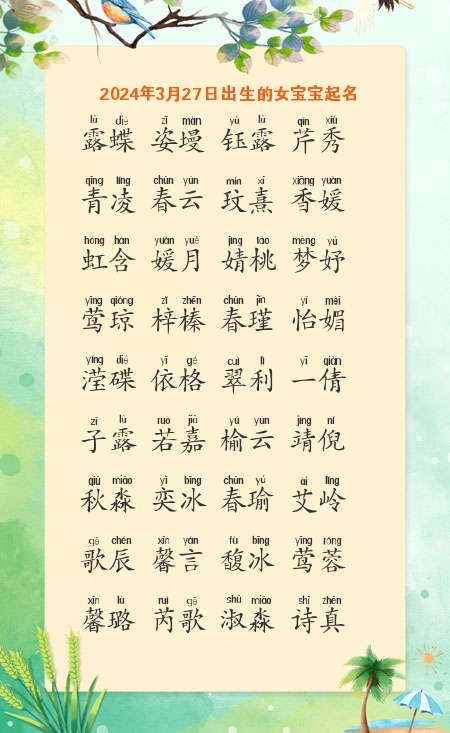 2024年3月27日出生的女宝宝起名
lù dié zī màn yù lù qín xiù
露蝶 姿墁 钰露 芹秀
qīng líng chūn yún mín xī xiāng yuàn
青凌 春云 玟熹 香媛
hóng hán yuàn yuè jìng táo mèng yú
虹含 媛月 婧桃 梦妤
yīng qióng zǐ zhēn chūn jǐn yí mèi
莺琼 梓榛 春瑾 怡媚
yíng dié yī gé cuì lì yī qiàn
滢碟 依格 翠利 一倩
zǐ lù ruò jiā yú yún jìng ní
子露 若嘉 榆云 靖倪
qiū miǎo yì bīng chūn yú ài lǐng
秋淼 奕冰 春瑜 艾岭
gē chén xīn yán fù bīng yīng róng
歌辰 馨言 馥冰 莺蓉
xīn lù ruì gē shū miǎo shī zhēn
馨璐 芮歌 淑淼 诗真